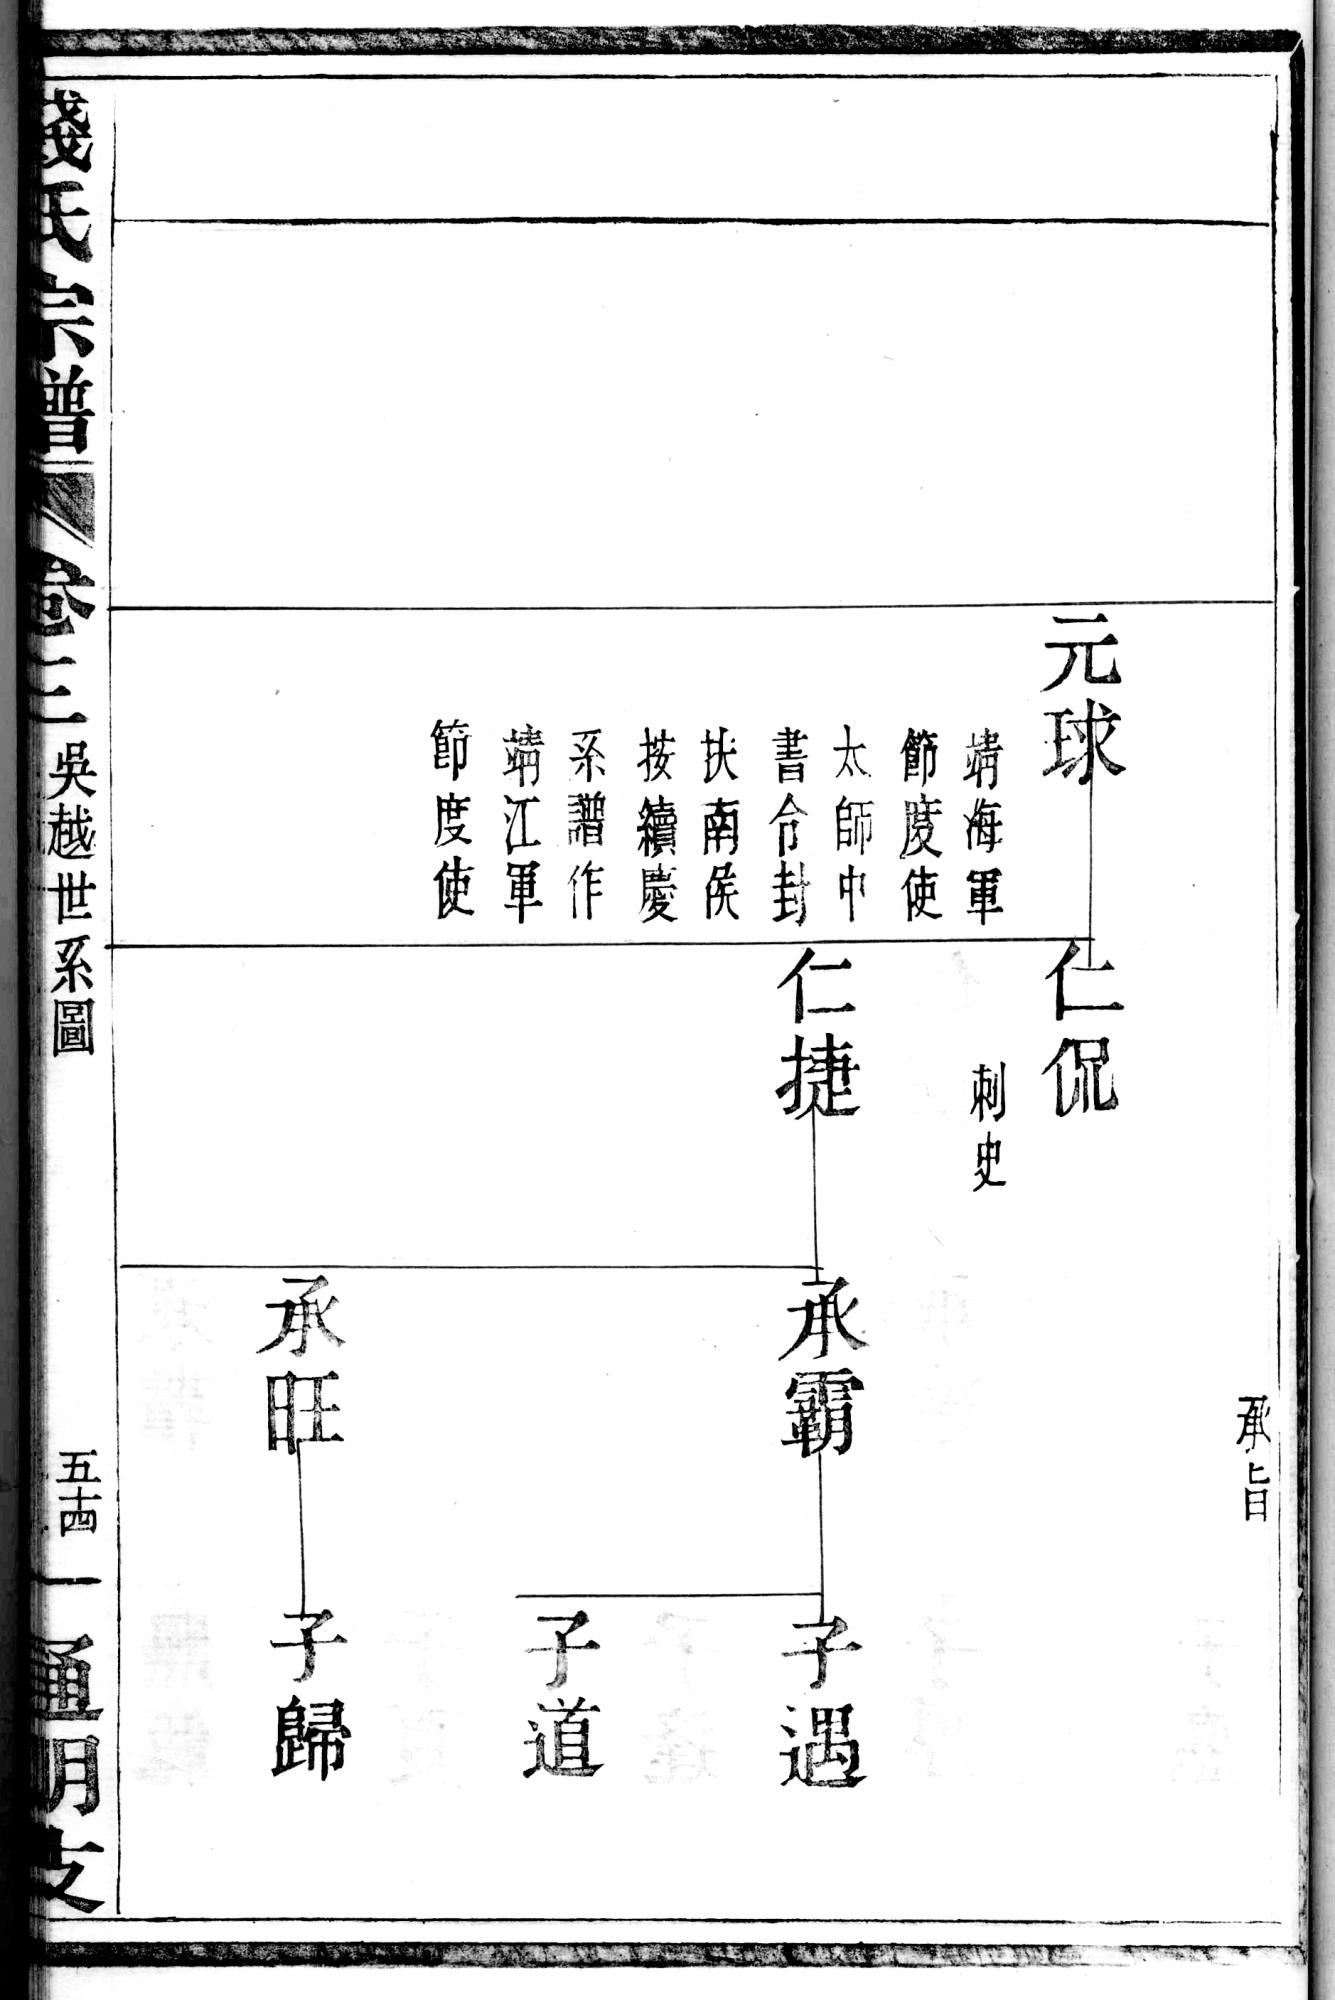 承旨
元球
靖海軍
節度使
太師中
書令封
扶南侯
按續慶
系譜作
靖江軍
節度使
仁侃
刺史
仁捷
承霸
承旺
子遇
子道
子歸
錢氏宗譜
卷三
吳越世系圖
五十四
一
通明支